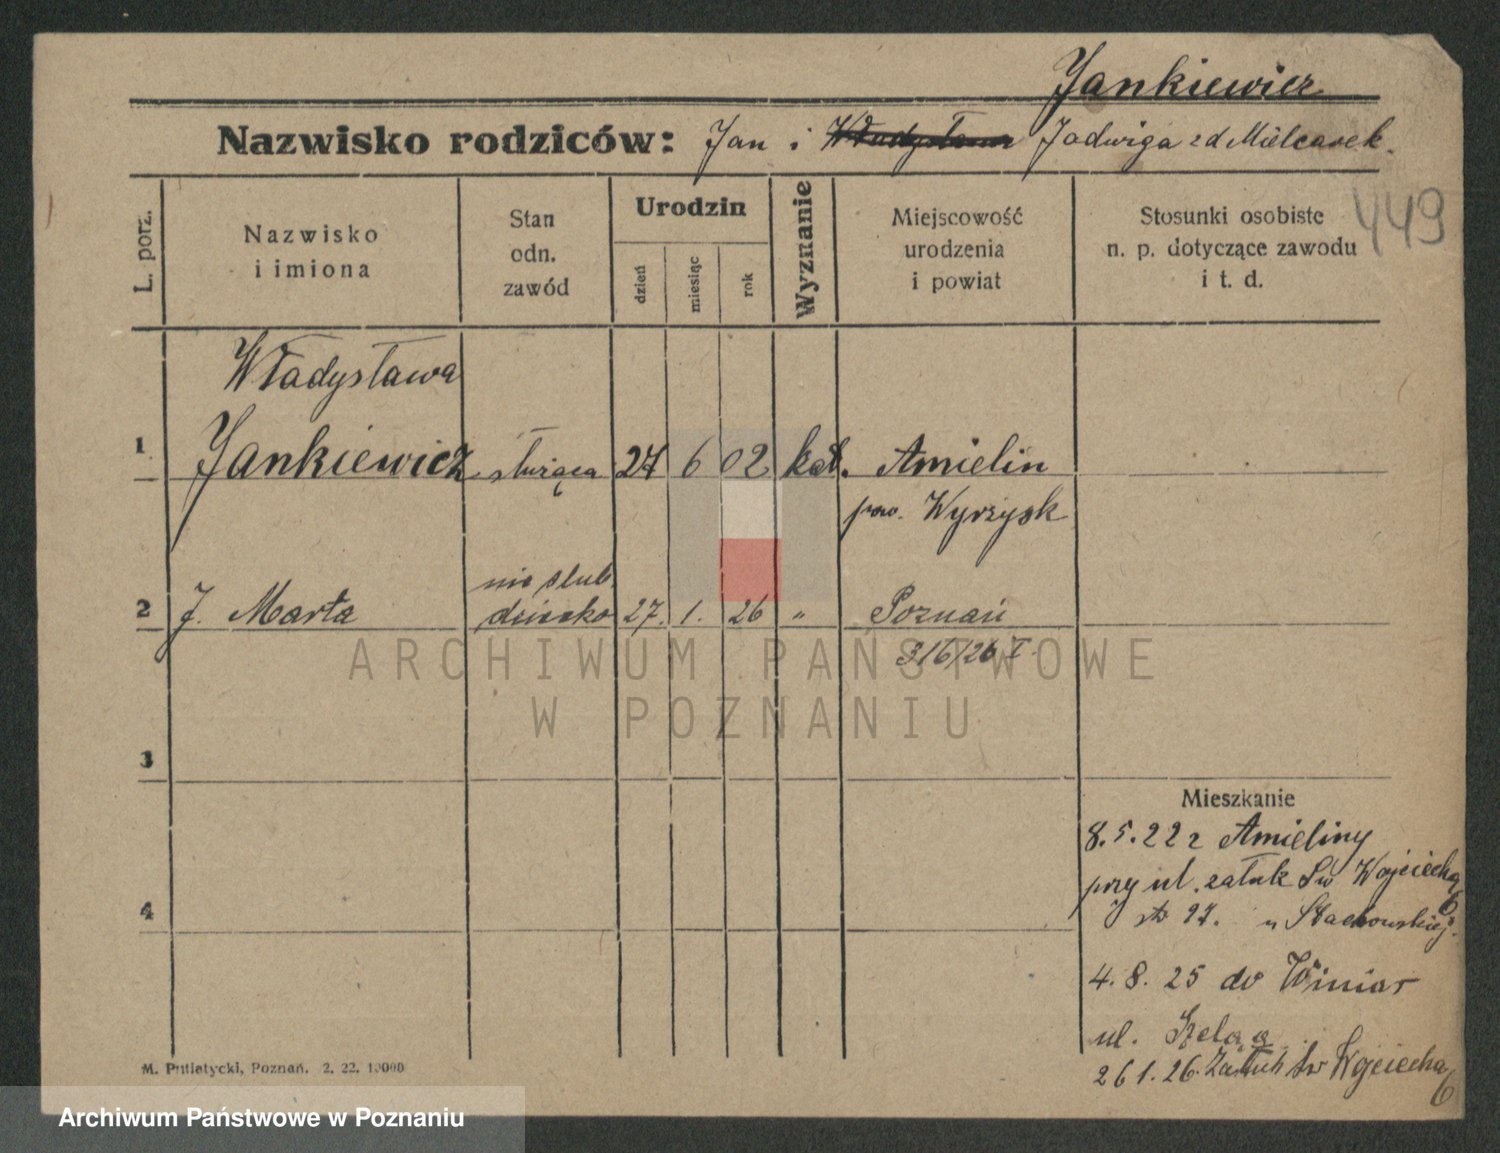 Jankiewicz
Nazwisko rodziców: Jan i Władysława Jadwiga zd Mielcarek.
449
L. porz.
Nazwisko
i imiona
Stan
odn.
zawód
Urodzin
dzień
miesiąc
rok
Wyznanie
Miejscowość
urodzenia
i powiat
Stosunki osobiste
n. p. dotyczące zawodu
i t. d.
Władysława
1 Jankiewicz służąca 27 6 02 kat. Amielin
pow. Wyrzysk
nie ślub.
2 J. Marta dziecko 27. 1. 26 " Poznań
316/26 I
ARCHIWUM PAŃSTWOWE
W POZNANIU
3
4
Mieszkanie
8.5.22 z Amieliny
przy ul. Sw Wojciecha 6
u Stachowskiej.
4.8.25 do Winiar
ul.
26 1.26. Sw Wojciecha 6
M. Putiatycki, Poznań. 2. 22. 10000
Archiwum Państwowe w Poznaniu